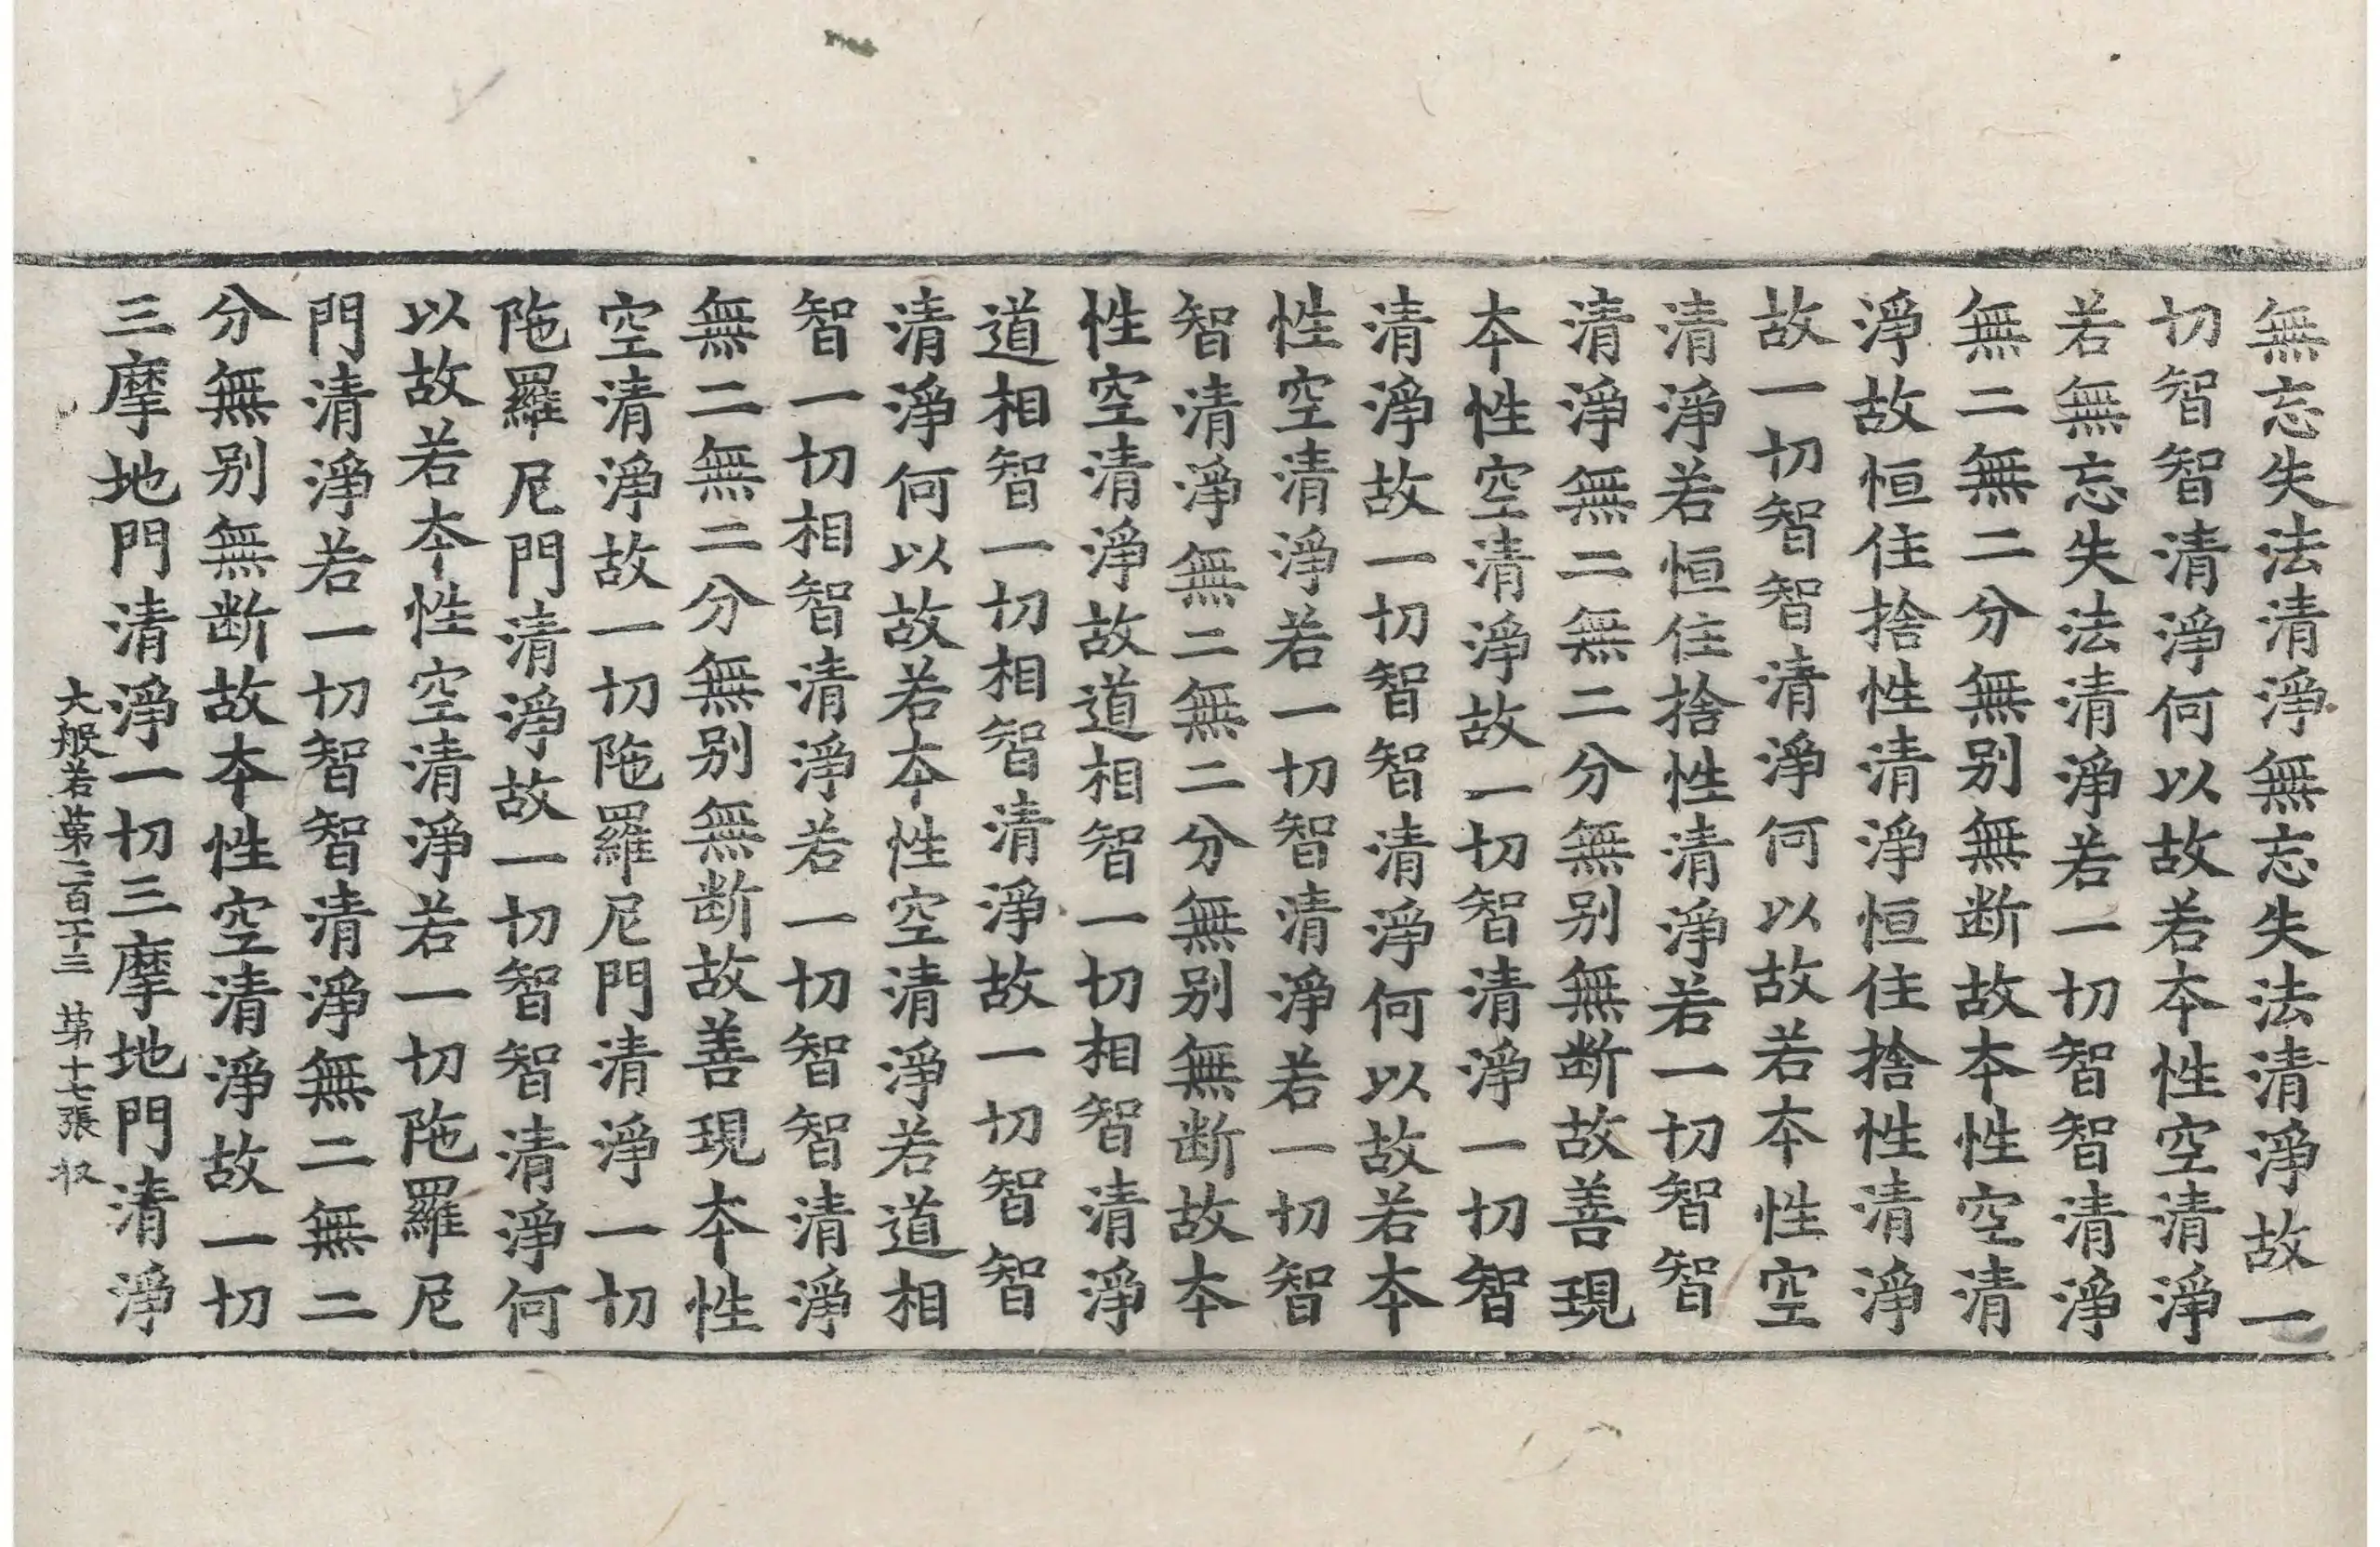 無忘失法清淨無忘失法清淨故一
切智智清淨何以故若夲性空清淨
若無忘失法清淨若一切智智清淨
無二無二分無别無断故夲性空清
淨故恒住捨性清淨恒住捨性清淨
故一切智智清淨何以故若夲性空
清淨若恒住捨性清淨若一切智智
清淨無二無二分無别無断故善現
夲性空清淨故一切智清淨一切智
清淨故一切智智清淨何以故若夲
性空清淨若一切智清淨若一切智
智清淨無二無二分無别無断故夲
性空清淨故道相智一切相智清淨
道相智一切相智清淨故一切智智
清淨何以故若夲性空清淨若道相
智一切相智清淨若一切智智清淨
無二無二分無别無断故善現夲性
空清淨故一切陁羅尼門清淨一切
陁羅尼門清淨故一切智智清淨何
以故若夲性空清淨若一切陁羅尼
門清淨若一切智智清淨無二無二
分無别無断故夲性空清淨故一切
三摩地門清淨一切三摩地門清淨
大般若第二百一十三 第十七張